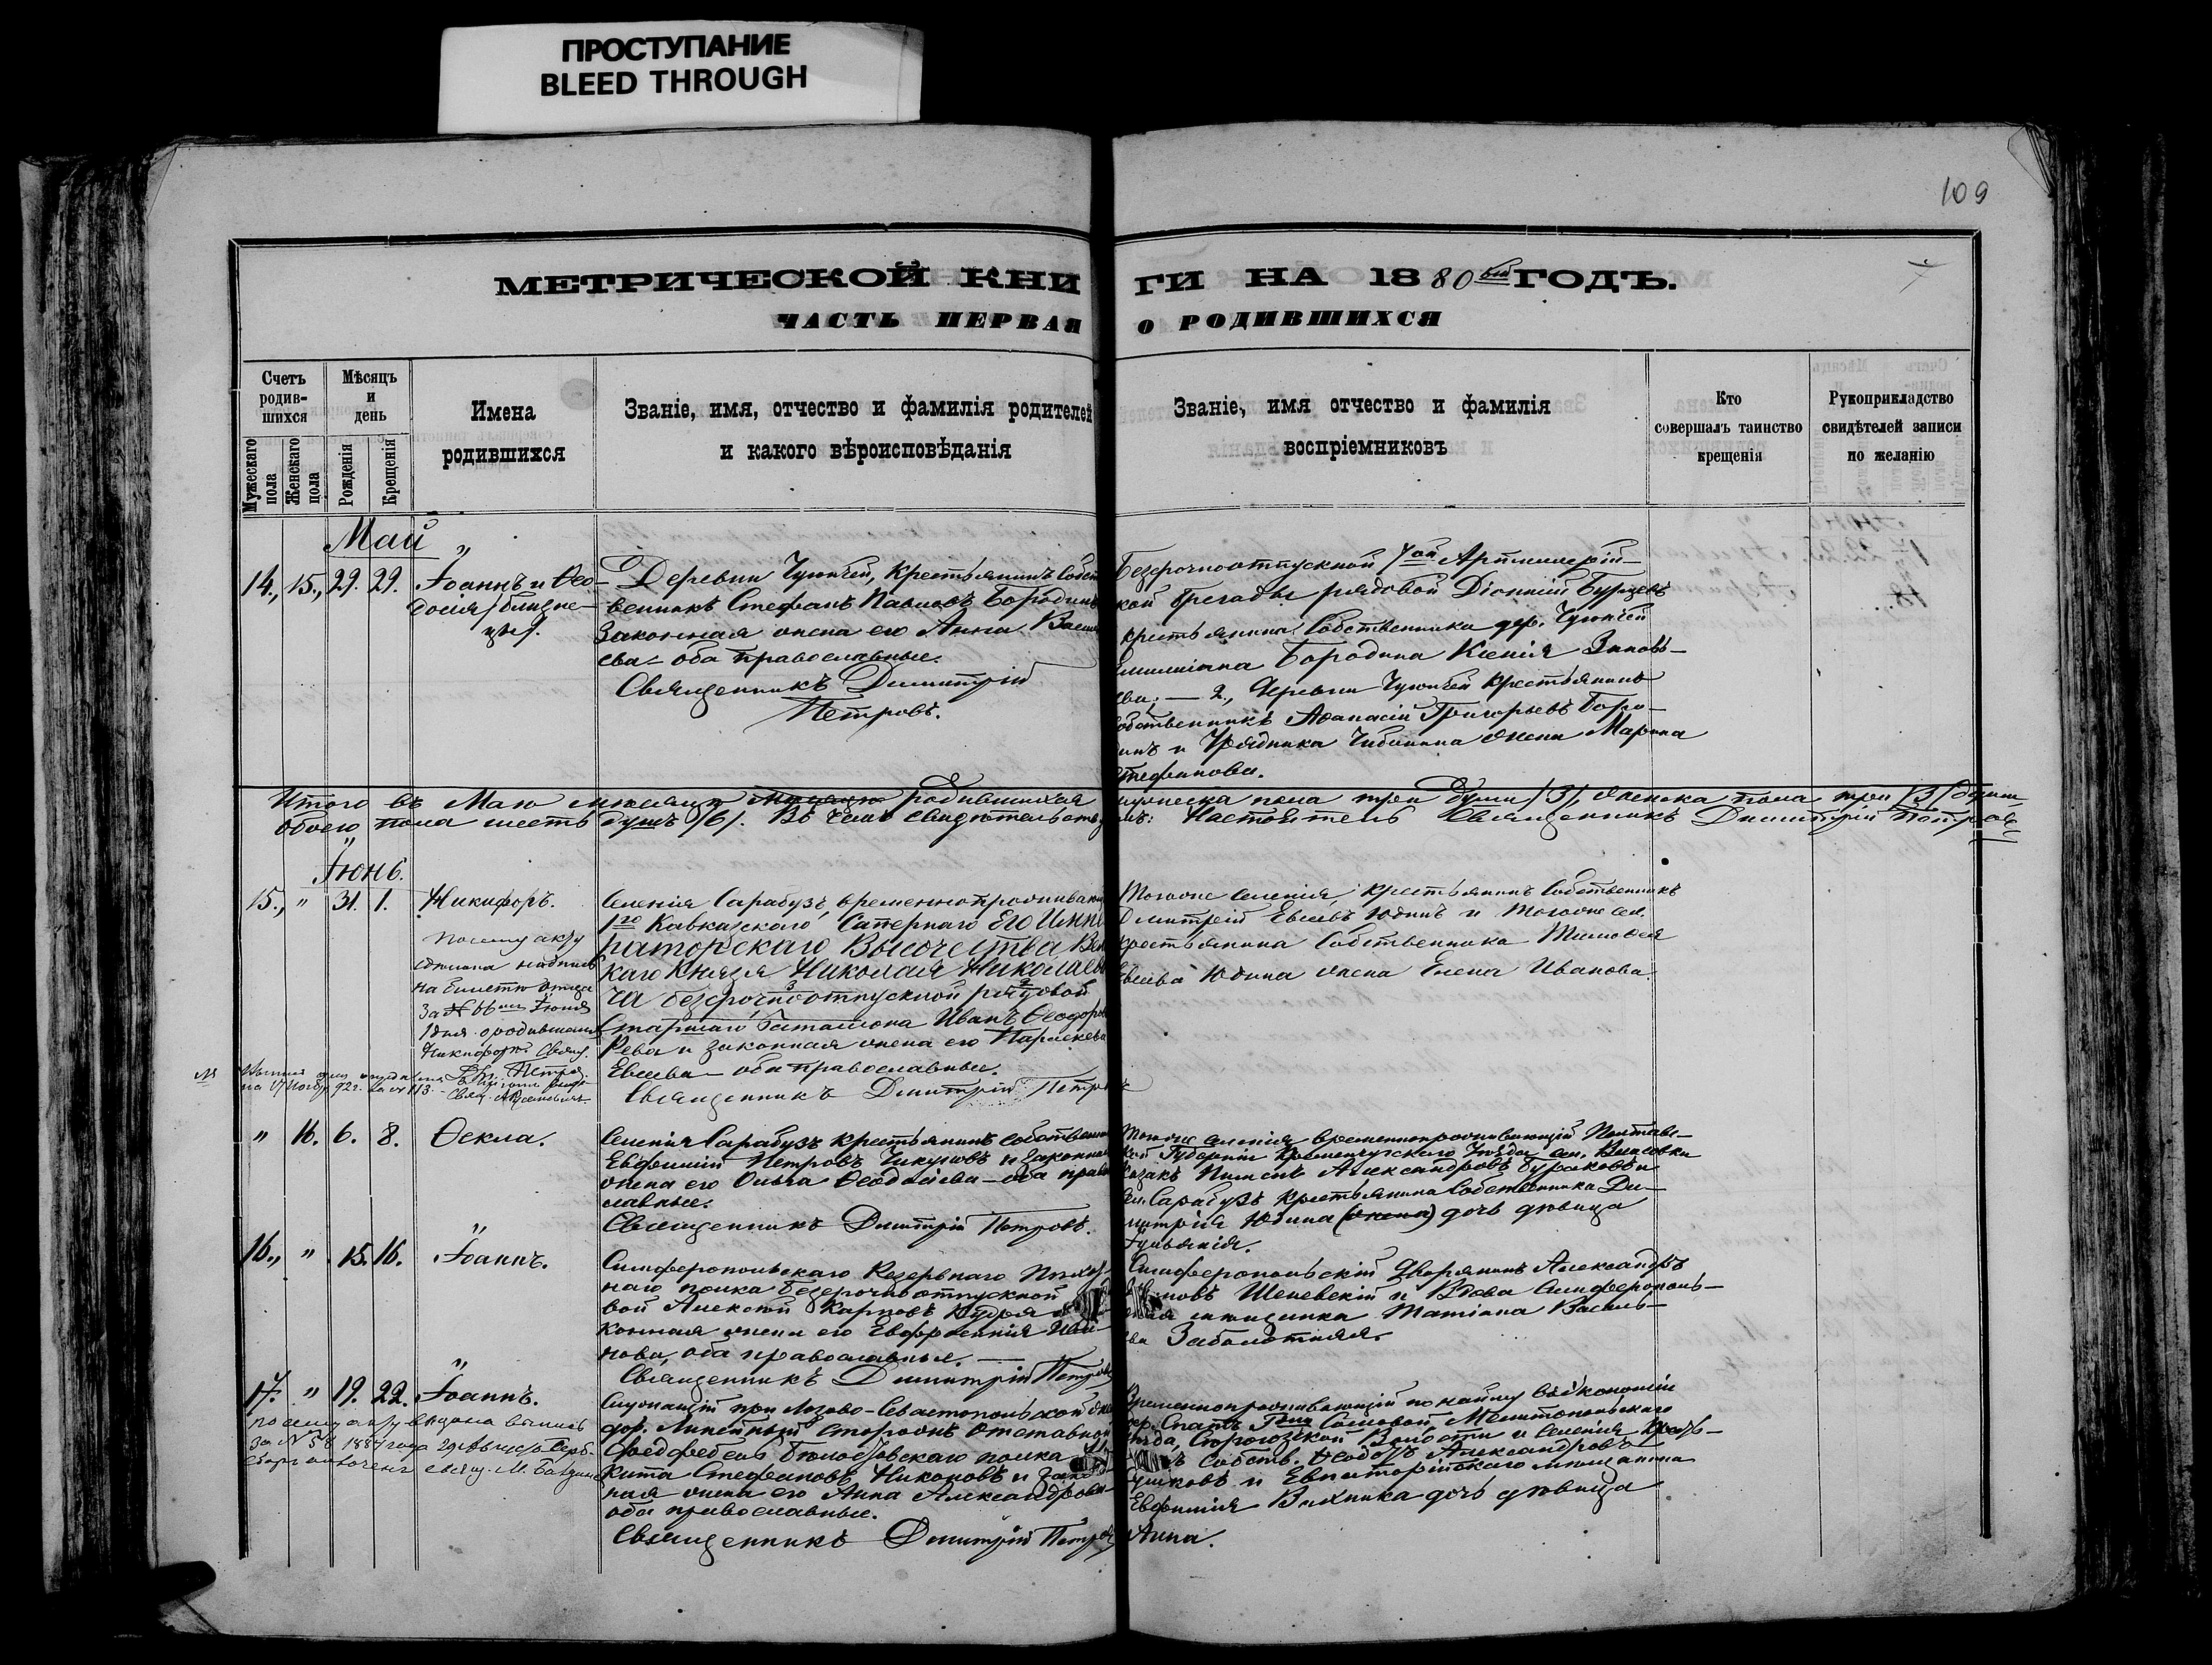 ПРОСТУПАНИЕ
BLEED THROUGH
109
МЕТРИЧЕСКОЙ КНИГИ НА 1880ый ГОДЪ.
7
ЧАСТЬ ПЕРВАЯ О РОДИВШИХСЯ
Счетъ родившихся
Мужескаго пола
Женскаго пола
Мѣсяцъ и день
Рожденія
Крещенія
Имена родившихся
Званіе, имя, отчество и фамилія родителей
и какого вѣроисповѣданія
Званіе, имя отчество и фамилія
воспріемниковъ
Кто
совершалъ таинство
крещенія
Рукоприкладство
свидѣтелей записи
по желанію
Май
14., 15., 29. 29.
Іоаннъ и Ѳео-
досія /близне-
цы/.
Деревни Чуюнчей, Крестьянинъ Собст
венникъ Стефанъ Павловъ Бородинъ
Законная жена его Анна Васил
ева – оба православные.
Священникъ Димитрій
Петровъ.
Безсрочноотпускной 7ой Артиллерій-
кой бригады рядовой Діонисій Бурцевъ
крестьянина Собственника дер. Чуюнчей
Емиліана Бородина Ксенія Зиновь-
ева; — 2., Деревни Чуюнчей Крестьянинъ
обственникъ Аѳанасій Григорьевъ Боро-
динъ и Урядника жена Марѳа
Стефанова.
Итого въ Маѣ мѣсяцѣ родившихся мужеска пола три души /3/, женска пола три /3/ души,
обоего пола шесть душъ /6/. Въ чемъ свидѣтельствуемъ: Настоятель Священникъ Димитрій Петровъ
Іюнь.
15., " 31. 1.
Никифоръ.
По сему акту
сдѣлана надпись
на билетѣ отца
за № 66 Іюня
1 дня о родившемся
Никифорѣ. Свящ.
Дм. Петровъ
Селенія Сарабузъ, временнопроживающ
1го Кавказскаго Сапернаго Его Импе
раторскаго Высочества Вел
каго Князя Николая Николаеви
ча безсрочноотпускной рядовой
Старшаго Баталіона Иванъ Ѳеодоровъ
Рева и законная жена его Параскева
Евсева – оба православные.
Священникъ Димитрій Петровъ
Тогоже селенія, крестьянинъ Собственникъ
Димитрій Евсевъ Юдинъ и тогоже сел.
крестьянина Собственника Тимоѳея
Евсева Юдина жена Елена Иванова.
" 16. 6. 8.
Ѳекла.
Селенія Сарабузъ крестьянинъ собственни
Евфимій Петровъ Чикуновъ и законная
жена его Ольга Ѳеодосіева – оба право
славные.
Священникъ Димитрій Петровъ.
Тогоже селенія временнопроживающій Полтавс-
кой Губерніи Кременчугскаго Уѣзда сел. Власовки
казакъ Пименъ Александровъ Бураковъ и
сел. Сарабузъ крестьянина Собственника Ди-
митрія Юдина (жена) дочь дѣвица
Іуліанія.
16., " 15. 16.
Іоаннъ.
Симферопольскаго Резервнаго Пѣхот
наго полка безсрочноотпускной
вой Алексій Карповъ Кудря и
конная жена его Евфросинія Ива
нова, оба православные.
Священникъ Димитрій Петровъ
Симферопольскій Дворянинъ Александръ
новъ Шелевскій и Вдова Симферополь-
ская мѣщанка Татіана Василь-
ева Заболотняя.
17. " 19. 22.
Іоаннъ.
по сему акту выдана выпись
за № 58 1887 года 29 Августа
свящ. М.
Служащій при Лозово-Севастопольской
дор. Линейный Сторожъ отставной
Фельдфебель Бѣлостокскаго полка
кита Стефановъ Никоновъ и зако
ная жена его Анна Александрова
оба православные.
Священникъ Димитрій Петровъ
Временнопроживающій по найму въ экономіи
дер. Спатъ Мелитопольскаго
Уѣзда, Сторогозской Волости и селенія крест-
Собств. Ѳеодоръ Александровъ
и Евпаторійскаго мѣщанина
Евфимія дочь дѣвица
Анна.